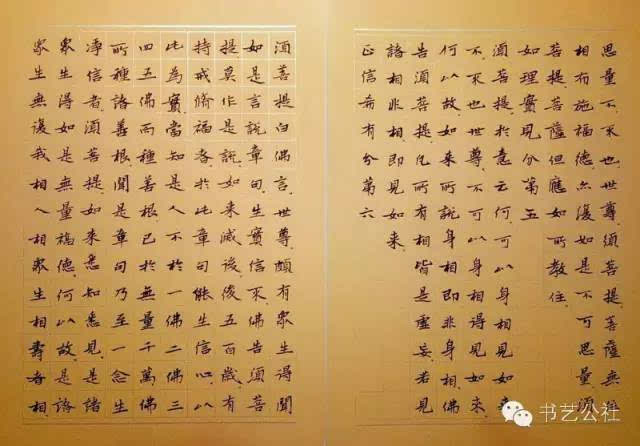 思量不不也世尊須菩提菩薩無住
相布施福德亦復如是不可思量須
菩提菩薩但應如所教住
如理實見分第五
須菩提於意云何可以身相見如來
不不也世尊不可以身相得見如來
何以故如來所說身相即非身相佛
告須菩提凡所有相皆是虛妄若見
諸相非相即見如來
正信希有分第六
須菩提白佛言世尊頗有眾生得聞
如是言說章句生實信不佛告須菩
提莫作是說如來滅後後五百歲有
持戒修福者於此章句能生信心以
此為實當知是人不於一佛二佛三
四五佛而種善根已於無量千萬佛
所種諸善根聞是章句乃至一念生
淨信者須菩提如來悉知悉見是諸
眾生得如是無量福德何以故是諸
眾生無復我相人相眾生相壽者相
书艺公社